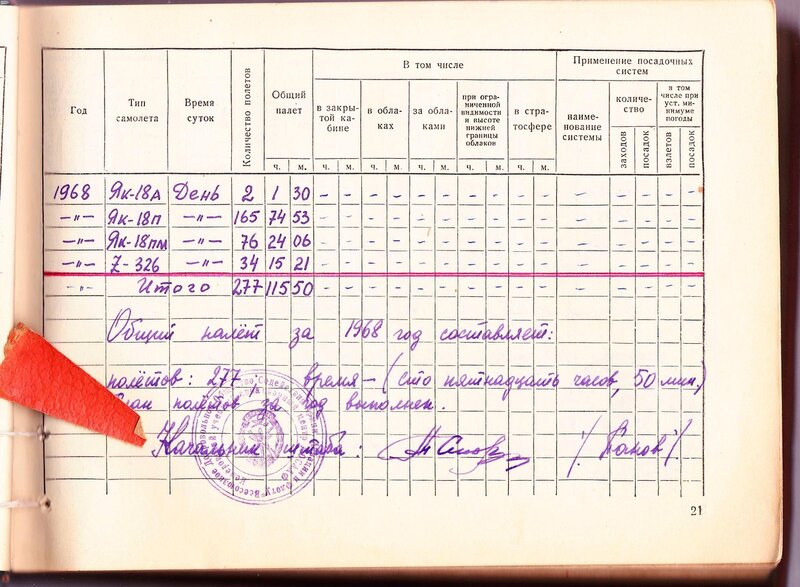 Год
Тип самолета
Время суток
Количество полетов
Общий налет
В том числе
Применение посадочных систем
в закрытой кабине
в облаках
за облаками
при ограниченной видимости и высоте нижней границы облаков
в стратосфере
наименование системы
количество
в том числе при уст. минимуме погоды
заходов
посадок
взлетов
посадок
ч. м. ч. м. ч. м. ч. м. ч. м. ч. м.
1968 Як-18А День 2 1 30 – – – – – – – – – – – – – – –
–"– Як-18П –"– 165 74 53 – – – – – – – – – – – – – – –
–"– Як-18ПМ –"– 76 24 06 – – – – – – – – – – – – – – –
–"– Z-326 –"– 34 15 21 – – – – – – – – – – – – – – –
–"– Итого 277 115 50 – – – – – – – – – – – – – – –
Общий налёт за 1968 год составляет:
полётов: 277. время – (сто пятнадцать часов, 50 мин.)
План полётов за год выполнен.
Начальник штаба: /Панов/
21